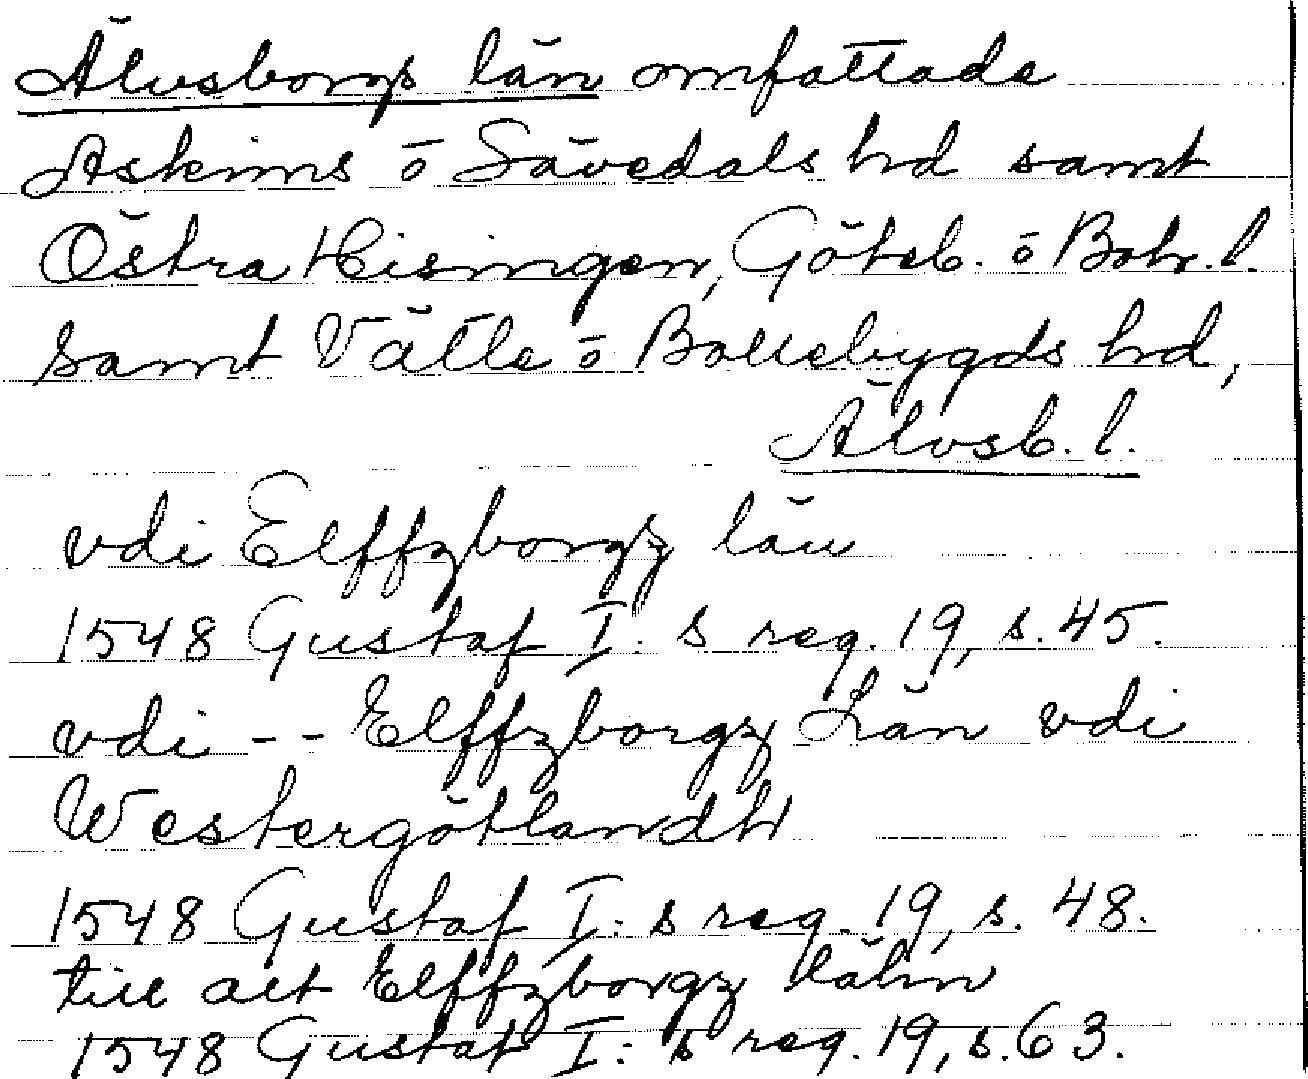 Älvsborgs län omfattade
Askims o Sävedals hd samt
Östra Hisingen, Göteb. o Boh. l.
samt Vättle o Bollebygds hd,
Älvsb. l.
vdi Elffzborgz län
1548 Gustaf I:s reg. 19, s. 45.
vdi -- Elffzborgz Län vdi
Westergötlandh
1548 Gustaf I:s reg. 19, s. 48.
till alt Elffzborgz lähn
1548 Gustaf I:s reg. 19, s. 63.